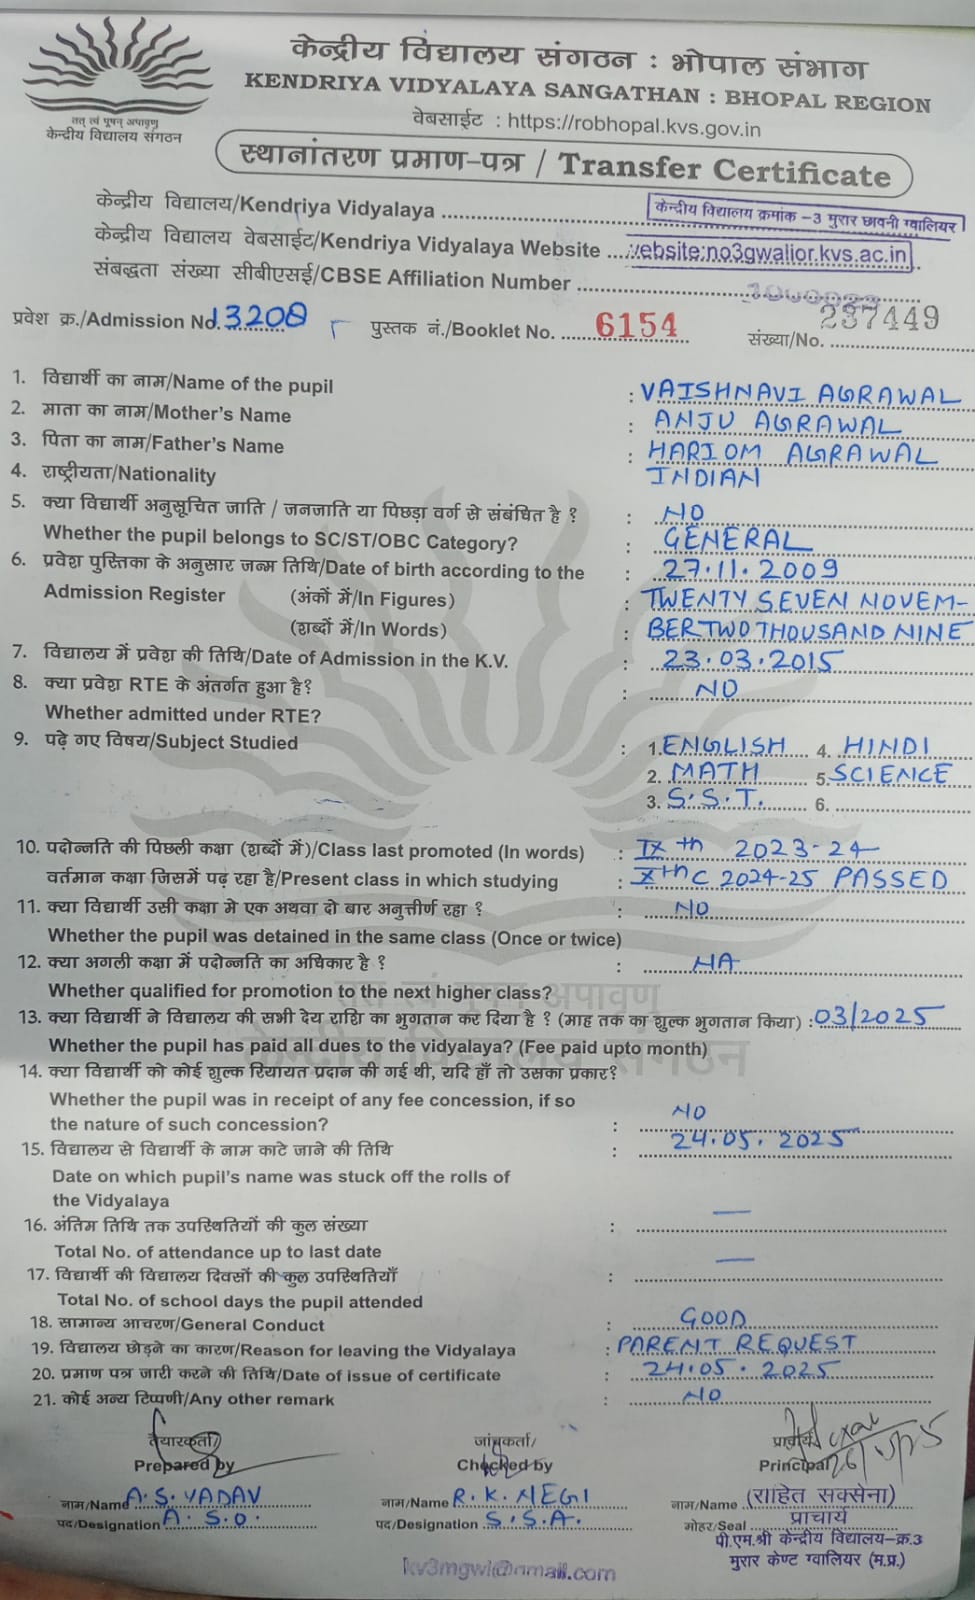 तत् त्वं पूषन् अपावृणु
केन्द्रीय विद्यालय संगठन
केन्द्रीय विद्यालय संगठन : भोपाल संभाग
KENDRIYA VIDYALAYA SANGATHAN : BHOPAL REGION
वेबसाईट : https://robhopal.kvs.gov.in
स्थानांतरण प्रमाण-पत्र / Transfer Certificate
केन्द्रीय विद्यालय/Kendriya Vidyalaya केन्द्रीय विद्यालय क्रमांक -3 मुरार छावनी ग्वालियर
केन्द्रीय विद्यालय वेबसाईट/Kendriya Vidyalaya Website website:no3gwalior.kvs.ac.in
संबद्धता संख्या सीबीएसई/CBSE Affiliation Number
प्रवेश क्र./Admission No. 13208 पुस्तक नं./Booklet No. 6154 संख्या/No. 237449
1. विद्यार्थी का नाम/Name of the pupil : VAISHNAVI AGRAWAL
2. माता का नाम/Mother's Name : ANJU AGRAWAL
3. पिता का नाम/Father's Name : HARIOM AGRAWAL
4. राष्ट्रीयता/Nationality INDIAN
5. क्या विद्यार्थी अनुसूचित जाति / जनजाति या पिछड़ा वर्ग से संबंधित है ? : NO
Whether the pupil belongs to SC/ST/OBC Category? : GENERAL
6. प्रवेश पुस्तिका के अनुसार जन्म तिथि/Date of birth according to the : 27.11.2009
Admission Register (अंकों में/In Figures) : TWENTY SEVEN NOVEM-
(शब्दों में/In Words) : BER TWO THOUSAND NINE
7. विद्यालय में प्रवेश की तिथि/Date of Admission in the K.V. : 23.03.2015
8. क्या प्रवेश RTE के अंतर्गत हुआ है? : NO
Whether admitted under RTE?
9. पढ़े गए विषय/Subject Studied : 1. ENGLISH 4. HINDI
2. MATH 5. SCIENCE
3. S.S.T. 6.
10. पदोन्नति की पिछली कक्षा (शब्दों में)/Class last promoted (In words) : IXth 2023-24
वर्तमान कक्षा जिसमें पढ़ रहा है/Present class in which studying : Xth C 2024-25 PASSED
11. क्या विद्यार्थी उसी कक्षा मे एक अथवा दो बार अनुत्तीर्ण रहा ? : NO
Whether the pupil was detained in the same class (Once or twice)
12. क्या अगली कक्षा में पदोन्नति का अधिकार है ? : NA
Whether qualified for promotion to the next higher class?
13. क्या विद्यार्थी ने विद्यालय की सभी देय राशि का भुगतान कर दिया है ? (माह तक का शुल्क भुगतान किया) : 03/2025
Whether the pupil has paid all dues to the vidyalaya? (Fee paid upto month)
14. क्या विद्यार्थी को कोई शुल्क रियायत प्रदान की गई थी, यदि हाँ तो उसका प्रकार?
Whether the pupil was in receipt of any fee concession, if so
the nature of such concession? : NO
15. विद्यालय से विद्यार्थी के नाम काटे जाने की तिथि : 24.05.2025
Date on which pupil's name was stuck off the rolls of
the Vidyalaya
16. अंतिम तिथि तक उपस्थितियों की कुल संख्या : —
Total No. of attendance up to last date
17. विद्यार्थी की विद्यालय दिवसों की कुल उपस्थितियाँ : —
Total No. of school days the pupil attended
18. सामान्य आचरण/General Conduct : GOOD
19. विद्यालय छोड़ने का कारण/Reason for leaving the Vidyalaya : PARENT REQUEST
20. प्रमाण पत्र जारी करने की तिथि/Date of issue of certificate : 24.05.2025
21. कोई अन्य टिप्पणी/Any other remark : NO
तैयारकर्ता/ जांचकर्ता/ प्राचार्य/
Prepared by Checked by Principal
नाम/Name A.S. YADAV नाम/Name R.K. NEGI नाम/Name (राहित सक्सेना)
पद/Designation A.S.O. पद/Designation S.S.A. मोहर/Seal प्राचार्य
पी.एम.श्री केन्द्रीय विद्यालय-क्र.3
मुरार केण्ट ग्वालियर (म.प्र.)
kv3mgwl@gmail.com